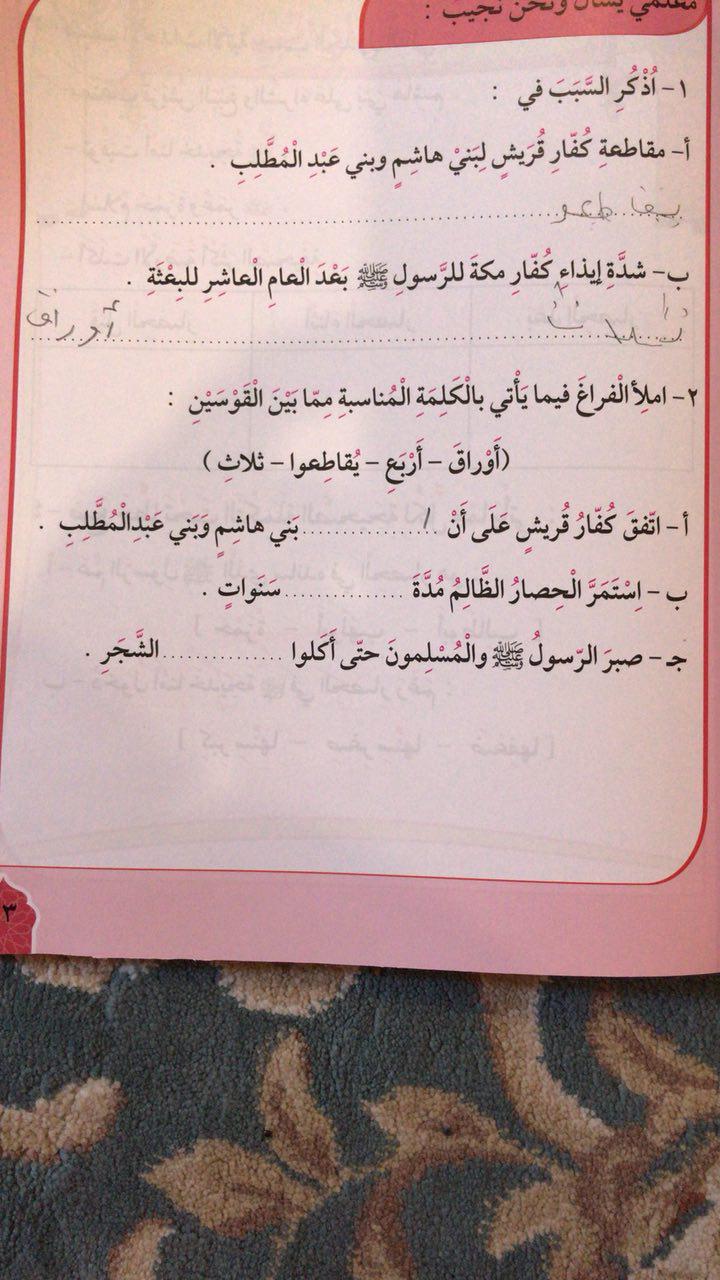 معلمي يسأل ونحن نجيب :
١- اُذْكُرِ السَّبَبَ في :
أ- مقاطعةِ كُفّارِ قُرَيشٍ لِبَنيْ هاشِمٍ وبني عَبْدِ الْمُطَّلِبِ .
يقاطعو
ب- شدَّةِ إيذاءِ كُفّارِ مكةَ للرَّسولِ ﷺ بَعْدَ الْعامِ الْعاشِرِ للبِعْثَةِ .
أوراق
٢- املِأ الْفراغَ فيما يَأْتي بالْكَلِمَةِ الْمُناسبةِ مِمّا بَيْنَ الْقَوْسَيْنِ :
(أَوْراقَ - أَرْبَعِ - يُقاطِعوا - ثلاثِ )
أ- اتّفقَ كُفّارُ قُريشٍ عَلَى أَنْ ١..................بَني هاشِمٍ وَبَني عَبْدِالْمُطَّلِبِ .
ب- اِسْتَمَرَّ الْحِصارُ الظَّالِمُ مُدَّةَ ..................سَنَواتٍ .
جـ- صبرَ الرّسولُ ﷺ والْمُسْلِمونَ حتّى أَكَلوا ..................الشَّجَرِ .
٣